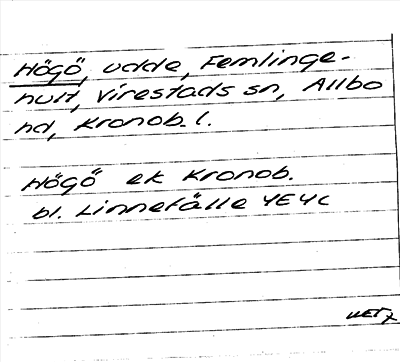 Högö, udde, Femlinge-
hult, Virestads sn, Allbo
hd, Kronob. l.
Högö ek Kronob.
bl. Linnefälle 4E4c